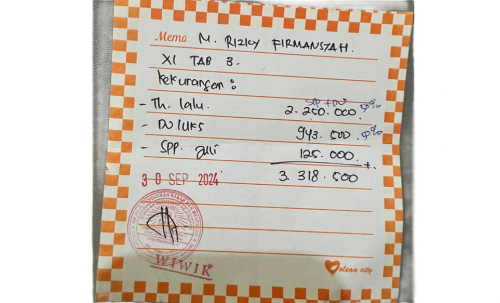 Memo M. RIZKY FIRMANSYAH.
XI TAB 3.
Kekurangan :
- Th. lalu. 2.250.000.
- DU LUKS 943.500.
- SPP. Juli 125.000. +
3.318.500
30 SEP 2024
WIWIK
olean city